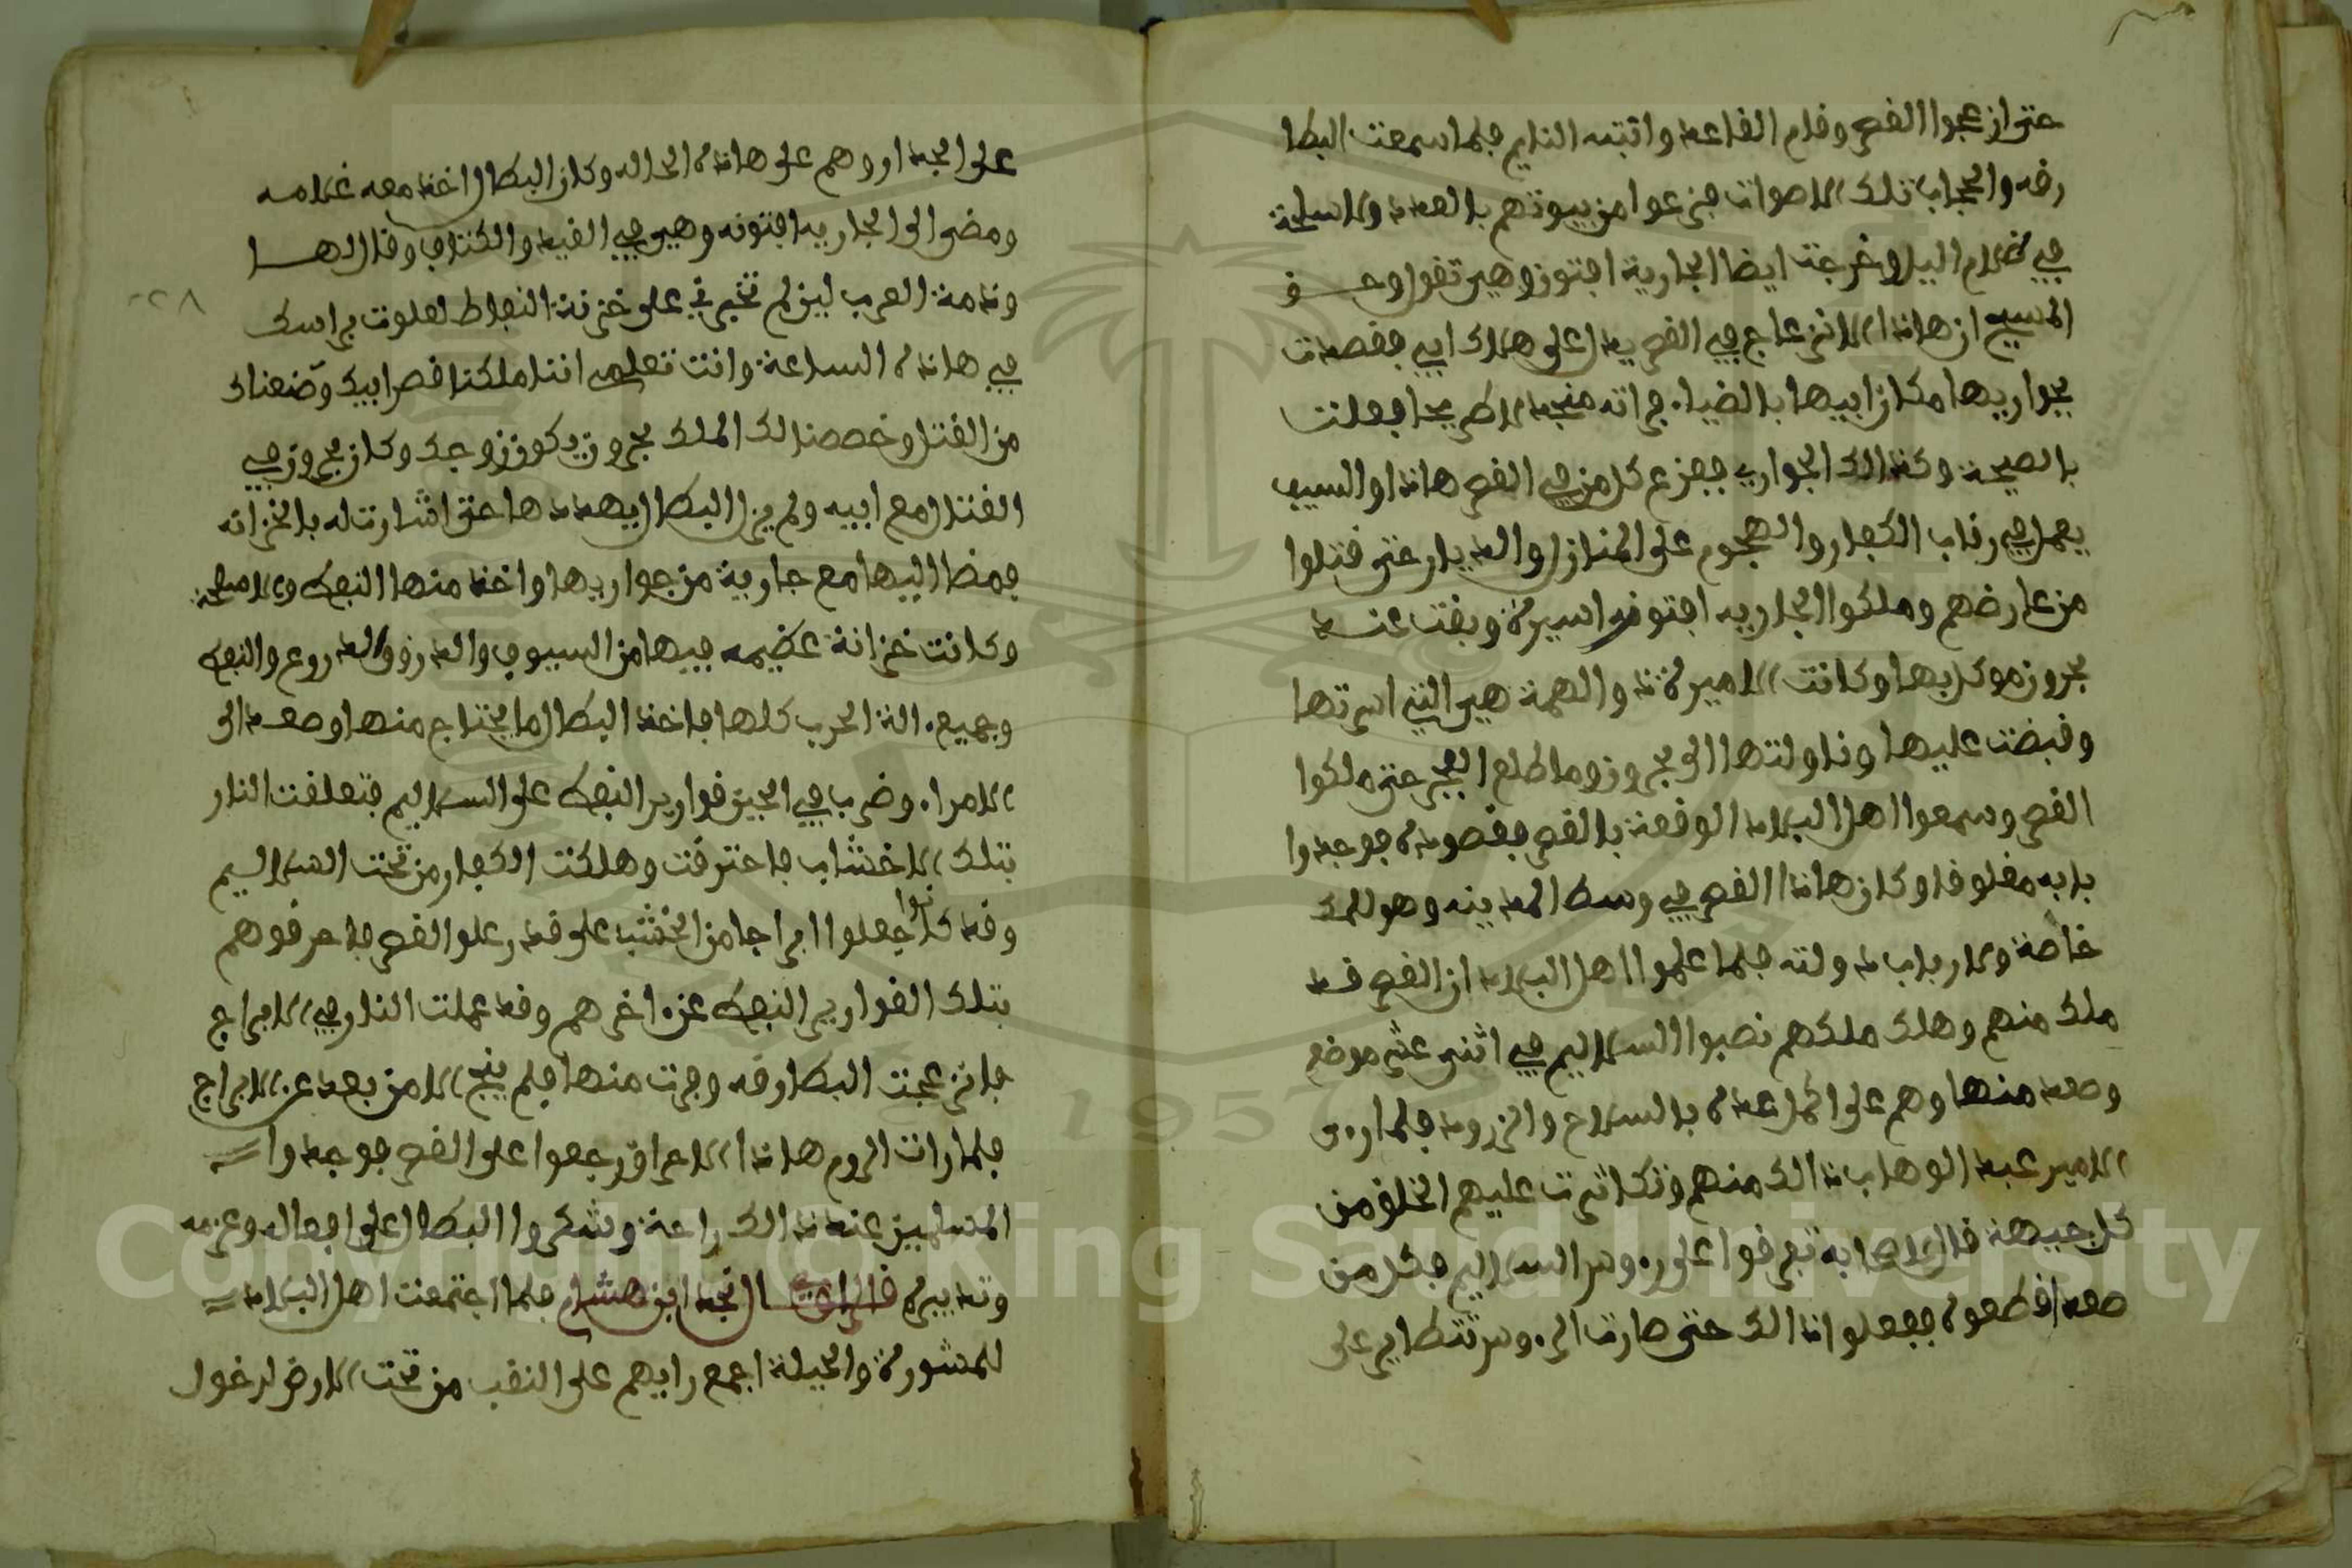 حتى انزعجوا القصر وقام القاعد وانتبه النايم فلما سمعت البطا
رقه والحجاب تلك الاصوات خرجوا من بيوتهم بالعدد والاسلحة
في ظلام اليل وخرجت ايضا الجارية افتون وهي تقول وحق
المسيح ان هاذا الانزعاج في القصر يدل على هلاك ابي فقصدت
بجواريها مكان ابيها بالضياء فراته منجدلا طريحا فعلت
بالصيحة وكذالك الجوار ففزع كل من في القصر هاذا والسيف
يعمل في رقاب الكفار والهجوم على المنازل والديار حتى قتلوا
من عارضهم وملكوا الجاريه افتونه اسيرة وبقت عند
بحرون موكل بها وكانت الاميرة ذا والهمة هي التي اسرتها
وقبضت عليها وناولتها الى بحرون وما طلع الفجر حتى ملكوا
القصر وسمعوا اهل البلاد الوقعة بالقصر فقصدوه فوجدوا
بابه مغلوقا وكان هاذا القصر في وسط المدينه وهو للملك
خاصة ولارباب دولته فلما علموا اهل البلاد ان القصر قد
ملك منهم وهلك ملكهم نصبوا السلاليم في اثنى عشر موضع
وصعد منها وهم على المراعدة بالسلاح والزرود فلما رءى
الامير عبد الوهاب ذالك منهم وتكاثرت عليهم الخلق من
كل جيهة قال لاصحابه تفرقوا على رءوس السلاليم فكل من
صعد اقطعوه ففعلوا ذالك حتى صارت الرءوس تتطاير على
على الجدار وهم على هاذه الحاله وكان البطال اخذ معه غلامه
ومضى الى الجاريه افتونه وهي في القيد والكتاف وقال لها
وذمة العرب لين لم تخبرني على خزنة النفاط لعلوت براسك
في هاذه الساعة وانت تعلمي اننا ملكنا قصر ابيك وضعناك
من القتل وخصصنا لك الملك بحرون يكون زوجك وكان بحرون في
القتال مع ابيه ولم يزل البطال يهددها حتى اشارت له بالخزانه
فمضا اليها مع جارية من جواريها واخذ منها النفط والاسلحة
وكانت خزانة عظيمه فيها من السيوف والدرق والدروع والنفط
وجميع ءالة الحرب كلها فاخذ البطال ما يحتاج منها وصعد الى
الامراء وضرب في الحين قوارير النفط على السلاليم فتعلقت النار
بتلك الاخشاب فاحترقت وهلكت الكفار من تحت السلاليم
وقد كانوا جعلوا ابراجا من الخشب على قدر علو القصر فاحرقوهم
بتلك القوارير النفط عن ءاخرهم وقد عملت النار في الابراج
فانزعجت البطارقه وفرت منها فلم ينج الا من بعد عن الابراج
فلما رات الروم هاذا الاحراق رجعوا على القصر فوجدوا
المسلمين عند ذالك راحة وشكروا البطال على افعاله وعزمه
وتدبيره قال الراوي نجد ابن هشام فلما اجتمعت اهل البلاد
للمشورة والحيلة اجمع رايهم على النقب من تحت الارض لدخول
٢٢٨
Copyright © King Saud University
1957